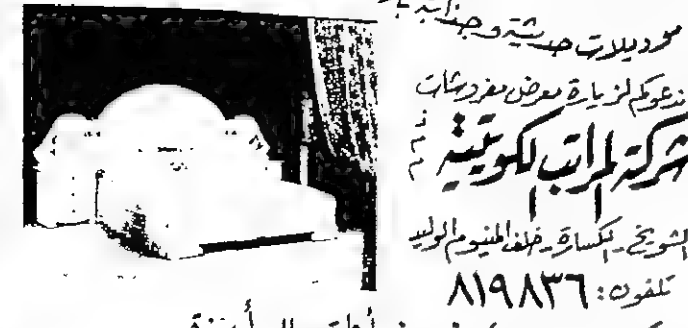 موديلات حديثة وجذابة
ندعوكم لزيارة معرض مفروشات
شركة المراتب الكويتية
ذ م م
الشويخ - الكسارة - خلف المنيوم الوليد
تلفون: ٨١٩٨٣٦